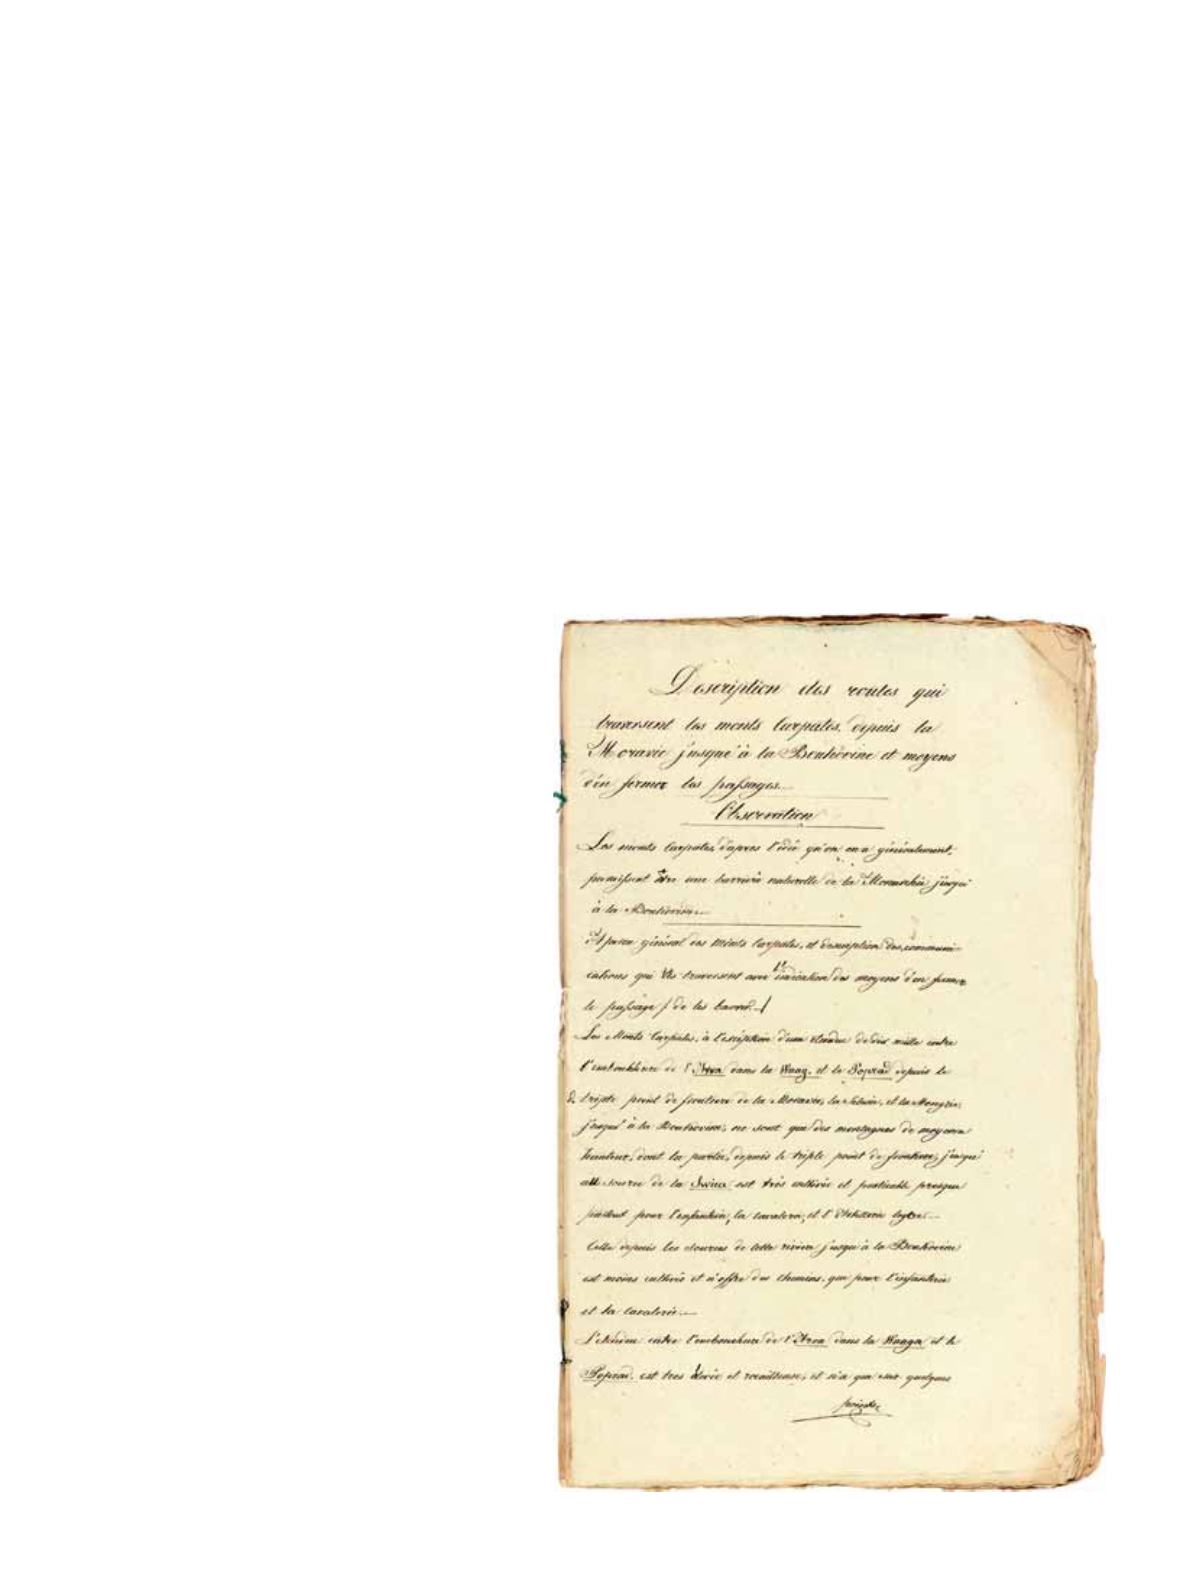 Description des routes qui
traversent les monts Carpates, depuis la
Moravie jusqu'à la Boukovine et moyens
d'en fermer les passages.
Observation
Les monts Carpates, d'après l'idée qu'on en a généralement,
paraissent être une barrière naturelle de la Monarchie jusqu'
à la Boukovine.
Aperçu général des Monts Carpates, et description des communi-
cations qui les traversent avec l'indication des moyens d'en fermer
le passage / de les barrer. /
Les Monts Carpates, à l'exception d'une étendue de dix mille entre
l'embouchure de l'Arva dans la Waag, et le Poprad depuis le
triple point de frontiere de la Moravie, la Silésie, et la Hongrie,
jusqu'à la Boukovine, ne sont que des montagnes de moyenne
hauteur, dont la partie, depuis le triple point de frontiere, jusqu'
source de la est très cultivée et praticable presque
partout pour l'infanterie, la cavalerie, et l'Artillerie legère.
Celle depuis les sources de cette riviere jusqu'à la Boukovine
est moins cultivée et n'offre des chemins, que pour l'infanterie
et la cavalerie.
L'étendue entre l'embouchure de l'Arva dans la Waaga et le
Poprad, est tres élevée et rocailleuse, et n'a que sur quelques
points